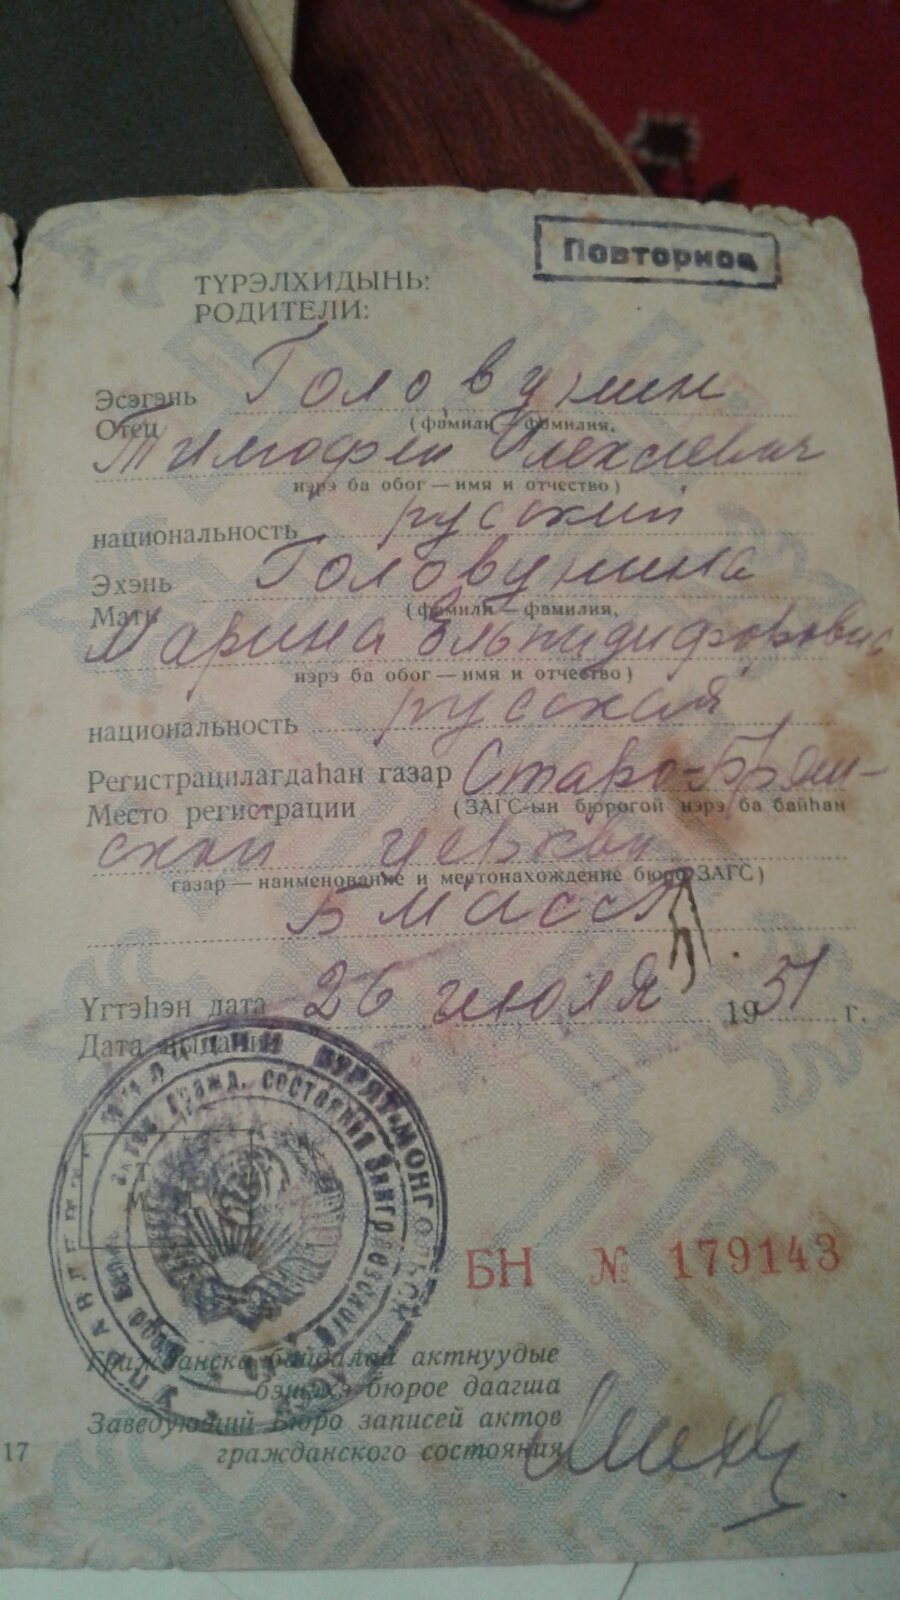 Повторное
ТҮРЭЛХИДЫНЬ:
РОДИТЕЛИ:
Эсэгэнь Головунин
Отец (фамили — фамилия,
Тимофей Алексеевич
нэрэ ба обог — имя и отчество)
национальность русский
Эхэнь Головунина
Мать (фамили — фамилия,
Марина Эльпидифоровна
нэрэ ба обог — имя и отчество)
национальность русская
Регистрацилагдаһан газар Старо-Брян-
Место регистрации (ЗАГС-ын бюрогой нэрэ ба байһан
ской церкви
газар — наименование и местонахождение бюро ЗАГС)
БМАССР
Үгтэһэн дата 26 июля 1951 г.
Дата выдачи
БУРЯТ-МОНГОЛЬСК
актов гражд. состояния Заиграевского
БН № 179143
Гражданска байдалай актнуудые
бэшэхэ бюрое даагша
Заведующий Бюро записей актов
гражданского состояния
17